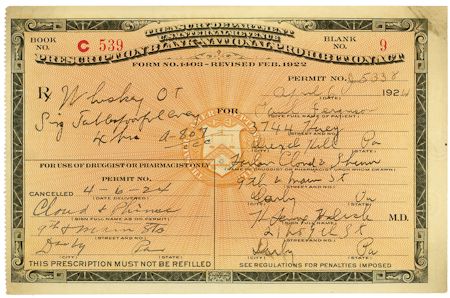 TREASURY DEPARTMENT
U.S. INTERNAL REVENUE
BOOK NO. C 539
BLANK NO. 9
PRESCRIPTION BLANK-NATIONAL PROHIBITION ACT
FORM NO. 1403-REVISED FEB. 1922
PERMIT NO.
April 6 1924
(DATE)
Whiskey
Sig Tablespoonful every
4 hrs
FOR
(FULL NAME OF PATIENT)
3744
(STREET AND NO.)
Drexel Hill Pa
(CITY) (STATE)
FOR USE OF DRUGGIST OR PHARMACIST ONLY
PERMIT NO.
CANCELLED 4-6-24
(DATE DELIVERED)
Cloud &
(SIGN FULL NAME AS ON PERMIT)
9th & Main Sts
(STREET AND NO.)
Darby Pa
(CITY) (STATE)
Cloud &
9th & Main St
(STREET AND NO.)
Darby Pa
(CITY) (STATE)
M.D.
(SIGN FULL NAME)
(STREET AND NO.)
Darby Pa
(CITY) (STATE)
THIS PRESCRIPTION MUST NOT BE REFILLED
SEE REGULATIONS FOR PENALTIES IMPOSED